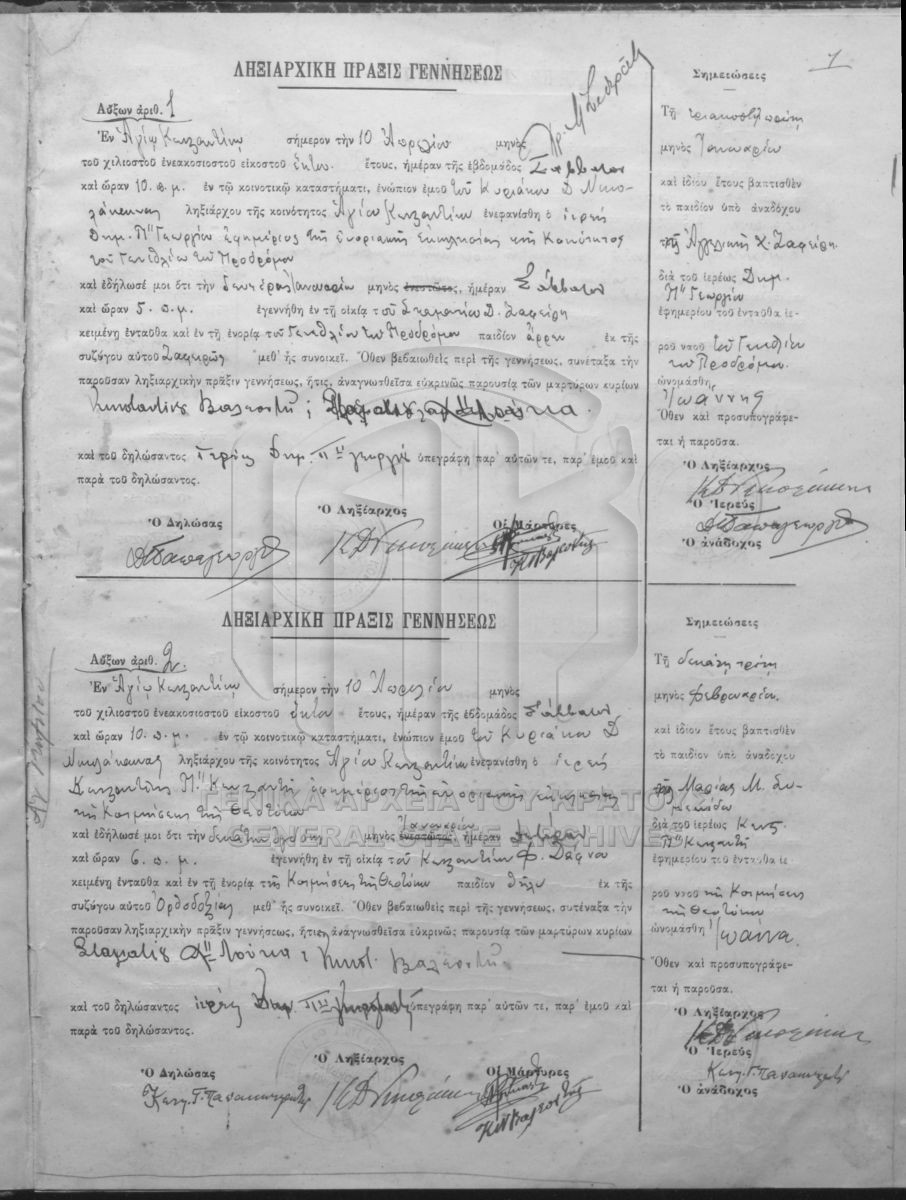 1
ΛΗΞΙΑΡΧΙΚΗ ΠΡΑΞΙΣ ΓΕΝΝΗΣΕΩΣ
Αὔξων ἀριθ. 1
Ἐν Ἁγίῳ Κωνσταντίνῳ σήμερον τὴν 10 Ἀπριλίου μηνὸς
τοῦ χιλιοστοῦ ἐνεακοσιοστοῦ εἰκοστοῦ ἕκτου ἔτους, ἡμέραν τῆς ἑβδομάδος Σάββατον
καὶ ὥραν 10 π.μ. ἐν τῷ κοινοτικῷ καταστήματι, ἐνώπιον ἐμοῦ τοῦ Κυριάκου Δ. Νικο-
λάκαινας ληξιάρχου τῆς κοινότητος Ἁγίου Κωνσταντίνου ἐνεφανίσθη ὁ ἱερεὺς
Δημ. Π" Γεωργίου ἐφημέριος τῆς ἐνοριακῆς ἐκκλησίας τῆς Κοινότητος
τοῦ Γενεθλίου τοῦ Προδρόμου
καὶ ἐδήλωσέ μοι ὅτι τὴν δευτέραν Ἰανουαρίου μηνὸς ἐνεστῶτος, ἡμέραν Σάββατον
καὶ ὥραν 5 π.μ. ἐγεννήθη ἐν τῇ οἰκίᾳ τοῦ Σταματίου Δ. Ζαφείρη
κειμένῃ ἐνταῦθα καὶ ἐν τῇ ἐνορίᾳ τοῦ Γενεθλίου τοῦ Προδρόμου παιδίον ἄρρεν ἐκ τῆς
συζύγου αὐτοῦ μεθ' ἧς συνοικεῖ. Ὅθεν βεβαιωθεὶς περὶ τῆς γεννήσεως, συνέταξα τὴν
παροῦσαν ληξιαρχικὴν πρᾶξιν γεννήσεως, ἥτις, ἀναγνωσθεῖσα εὐκρινῶς παρουσίᾳ τῶν μαρτύρων κυρίων
Κωνσταντίνου Βαλεοντῆ
καὶ τοῦ δηλώσαντος ἱερέως Δημ. Π" Γεωργίου ὑπεγράφη παρ' αὐτῶν τε, παρ' ἐμοῦ καὶ
παρὰ τοῦ δηλώσαντος.
Ὁ Δηλώσας Ὁ Ληξίαρχος Οἱ Μάρτυρες
Σημειώσεις
Τῇ τριακοστῇ πρώτῃ
μηνὸς Ἰανουαρίου
καὶ ἰδίου ἔτους βαπτισθὲν
τὸ παιδίον ὑπὸ ἀναδόχου
τῆς Ἀγγελικῆς Χ. Ζαφείρη
διὰ τοῦ ἱερέως Δημ.
Π" Γεωργίου
ἐφημερίου τοῦ ἐνταῦθα ἱε-
ροῦ ναοῦ τοῦ Γενεθλίου
τοῦ Προδρόμου
ὠνομάσθη
Ἰωάννης
Ὅθεν καὶ προσυπογράφε-
ται ἡ παροῦσα.
Ὁ Ληξίαρχος
Ὁ Ἱερεὺς
Ὁ ἀνάδοχος
ΛΗΞΙΑΡΧΙΚΗ ΠΡΑΞΙΣ ΓΕΝΝΗΣΕΩΣ
Αὔξων ἀριθ. 2.
Ἐν Ἁγίῳ Κωνσταντίνῳ σήμερον τὴν 10 Ἀπριλίου μηνὸς
τοῦ χιλιοστοῦ ἐνεακοσιοστοῦ εἰκοστοῦ ἕκτου ἔτους, ἡμέραν τῆς ἑβδομάδος Σάββατον
καὶ ὥραν 10 π.μ. ἐν τῷ κοινοτικῷ καταστήματι, ἐνώπιον ἐμοῦ τοῦ Κυριάκου Δ
Νικολάκαινας ληξιάρχου τῆς κοινότητος Ἁγίου Κωνσταντίνου ἐνεφανίσθη ὁ ἱερεὺς
Κωνσταντῖνος Π" ἐφημέριος τῆς ἐνοριακῆς ἐκκλησίας
τῆς Κοιμήσεως τῆς Θεοτόκου
καὶ ἐδήλωσέ μοι ὅτι τὴν δεκάτην ὀγδόην μηνὸς ἐνεστῶτος, Ἰανουαρίου ἡμέραν Δευτέραν
καὶ ὥραν 6 π.μ. ἐγεννήθη ἐν τῇ οἰκίᾳ τοῦ Κωνσταντίνου Φ. Δάφνα
κειμένῃ ἐνταῦθα καὶ ἐν τῇ ἐνορίᾳ τῆς Κοιμήσεως τῆς Θεοτόκου παιδίον θῆλυ ἐκ τῆς
συζύγου αὐτοῦ Ὀρθοδοξίας μεθ' ἧς συνοικεῖ. Ὅθεν βεβαιωθεὶς περὶ τῆς γεννήσεως, συνέταξα τὴν
παροῦσαν ληξιαρχικὴν πρᾶξιν γεννήσεως, ἥτις ἀναγνωσθεῖσα εὐκρινῶς παρουσίᾳ τῶν μαρτύρων κυρίων
Κωνστ. Βαλεοντῆ
καὶ τοῦ δηλώσαντος ἱερέως ὑπεγράφη παρ' αὐτῶν τε, παρ' ἐμοῦ καὶ
παρὰ τοῦ δηλώσαντος.
Ὁ Δηλώσας Ὁ Ληξίαρχος Οἱ Μάρτυρες
Σημειώσεις
Τῇ δεκάτῃ τρίτῃ
μηνὸς Φεβρουαρίου
καὶ ἰδίου ἔτους βαπτισθὲν
τὸ παιδίον ὑπὸ ἀναδόχου
τῆς Μαρίας Μ.
διὰ τοῦ ἱερέως Κωνστ.
ἐφημερίου τοῦ ἐνταῦθα ἱε
ροῦ ναοῦ τῆς Κοιμήσεως
τῆς Θεοτόκου
ὠνομάσθη Ἰωάννα.
Ὅθεν καὶ προσυπογράφε-
ται ἡ παροῦσα.
Ὁ Ληξίαρχος
Ὁ Ἱερεὺς
Ὁ ἀνάδοχος
ΓΕΝΙΚΑ ΑΡΧΕΙΑ ΤΟΥ ΚΡΑΤΟΥΣ
GENERAL STATE ARCHIVES